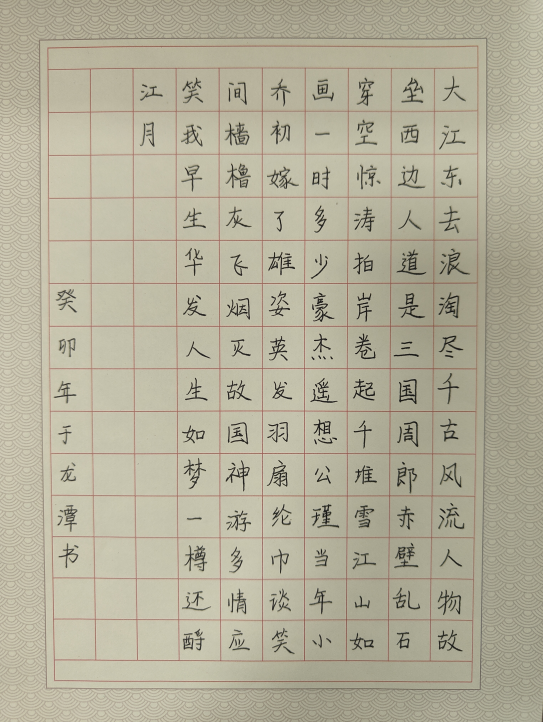 大江东去浪淘尽千古风流人物故
垒西边人道是三国周郎赤壁乱石
穿空惊涛拍岸卷起千堆雪江山如
画一时多少豪杰遥想公瑾当年小
乔初嫁了雄姿英发羽扇纶巾谈笑
间樯橹灰飞烟灭故国神游多情应
笑我早生华发人生如梦一樽还酹
江月
癸卯年于龙潭书